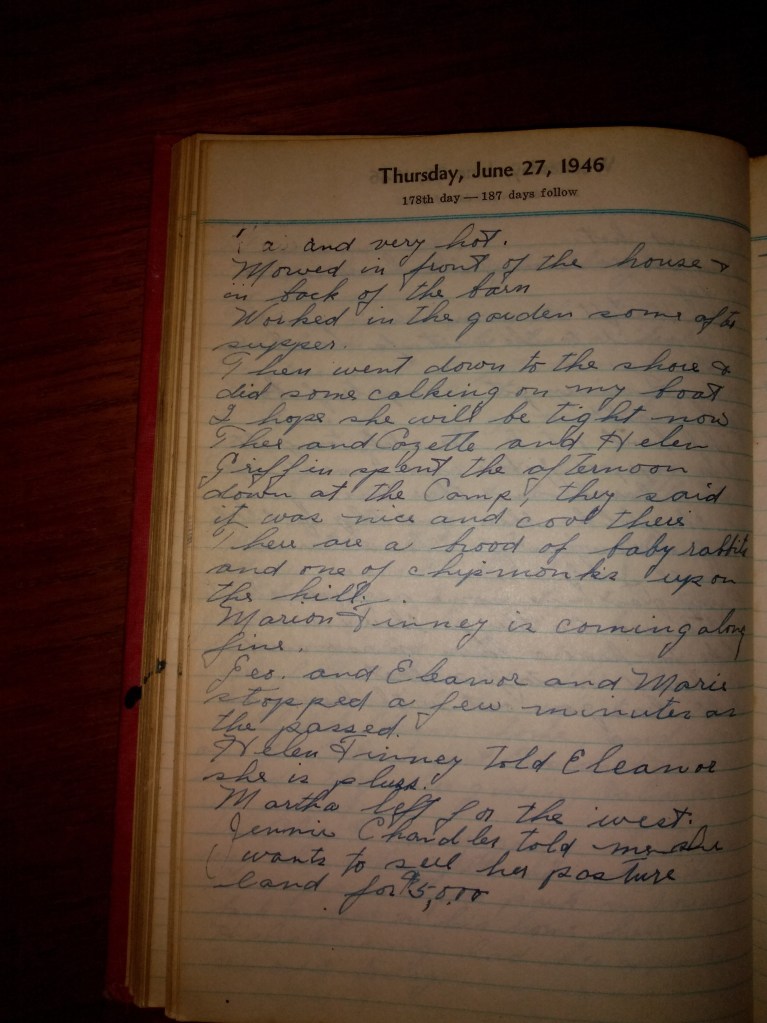 Thursday, June 27, 1946
178th day — 187 days follow
and very hot.
Mowed in front of the house &
in back of the barn
Worked in the garden some after
supper.
Then went down to the shore &
did some calking on my boat
I hope she will be tight now
Thee and Cozette and Helen
Griffin spent the afternoon
down at the Camp, they said
it was nice and cool there
There are a brood of baby rabbits
and one of chipmonks up on
the hill.
Marion Finney is coming along
fine.
Geo. and Eleanor and Marie
stopped a few minutes as
the passed.
Helen Finney told Eleanor
she is
Martha left for the west.
Jennie Chandler told me she
wants to sell her pasture
land for